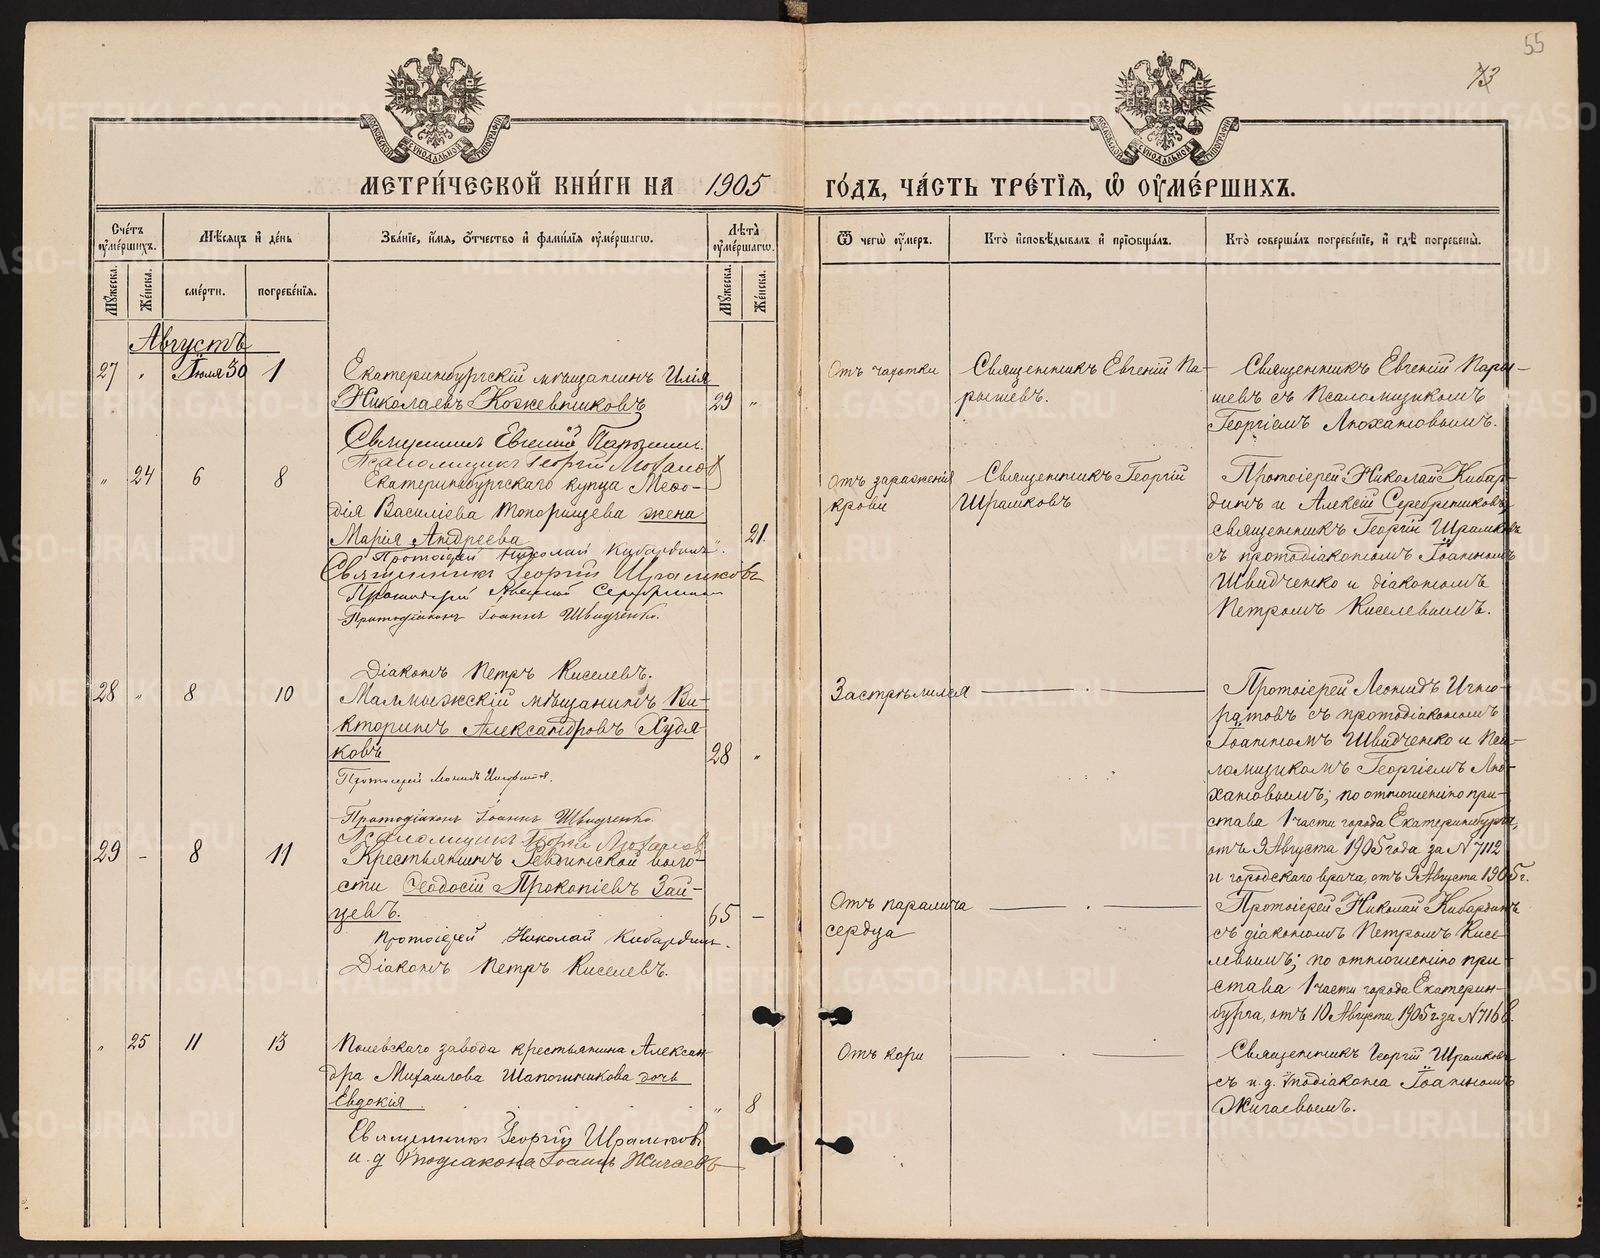 55
73
МЕТРИ́ЧЕСКОЙ КНИ́ГИ НА 1905 ГО́ДЪ, ЧА́СТЬ ТРЕ́ТІѦ, Ѽ ОУ҆МЕ́РШИХЪ.
Сче́тъ оу҆ме́ршихъ.
Мѣ́сѧцъ и҆ де́нь
Зва́нїе, и҆́мѧ, ѻ҆́тчество и҆ фами́лїѧ оу҆ме́ршагѡ.
Лѣ́та оу҆ме́ршагѡ.
Ѿ чегѡ̀ оу҆́меръ.
Кто̀ и҆сповѣ́дывалъ и҆ прїѡбща́лъ.
Кто̀ соверша́лъ погребе́нїе, и҆ гдѣ̀ погребены̀.
Мꙋ́жеска.
Же́нска.
сме́рти.
погребе́нїѧ.
Мꙋ́жеска.
Же́нска.
Августъ
27 " Іюля 30 1
Екатеринбургскій мѣщанинъ Илія
Николаевъ Кожевниковъ 29 "
Священникъ Евгеній Парышевъ.
Псаломщикъ Георгій Люхановъ
Отъ чахотки
Священникъ Евгеній Па-
рышевъ.
Священникъ Евгеній Пары-
шевъ съ Псаломщикомъ
Георгіемъ Люхановымъ.
" 24 6 8
Екатеринбургскаго купца Меѳо-
дія Василіева Топорищева жена
Марія Андреева 21.
Протоіерей Николай Кибардинъ.
Священникъ Георгій Шрамковъ
Протоіерей Алексій Серебренниковъ
Протодіаконъ Іоаннъ Швидченко.
Діаконъ Петръ Киселевъ.
Отъ зараженія
крови
Священникъ Георгій
Шрамковъ
Протоіерей Николай Кибар-
динъ и Алексій Серебренниковъ,
священникъ Георгій Шрамковъ
съ протодіакономъ Іоанномъ
Швидченко и діакономъ
Петромъ Киселевымъ.
28 " 8 10
Малмыжскій мѣщанинъ Ви-
кторинъ Александровъ Худя-
ковъ 28 "
Протоіерей Леонидъ Игноратовъ.
Протодіаконъ Іоаннъ Швидченко
Псаломщикъ Георгій Люхановъ
Застрѣлился
Протоіерей Леонидъ Игно-
ратовъ съ протодіакономъ
Іоанномъ Швидченко и Пса-
ломщикомъ Георгіемъ Лю-
хановымъ; по отношенію при-
става 1 части города Екатеринбурга,
отъ 9 Августа 1905 года за N 7112
и городского врача, отъ 9 Августа 1905 г.
29 - 8 11
Крестьянинъ Ревдинской воло-
сти Ѳеодосій Прокопіевъ Зай-
цевъ. 65 -
Протоіерей Николай Кибардинъ.
Діаконъ Петръ Киселевъ.
Отъ паралича
сердца
Протоіерей Николай Кибардинъ
съ діакономъ Петромъ Кисе-
левымъ; по отношенію при-
става 1 части города Екатерин-
бурга, отъ 10 Августа 1905 г. за N 7168.
" 25 11 13
Полевскаго завода крестьянина Алексан-
дра Михаилова Шапошникова дочь
Евдокія. " 8
Священникъ Георгій Шрамковъ
и. д. иподіакона Іоаннъ Жигаевъ
Отъ кори
Священникъ Георгій Шрамковъ
съ и. д. иподіакона Іоанномъ
Жигаевымъ.